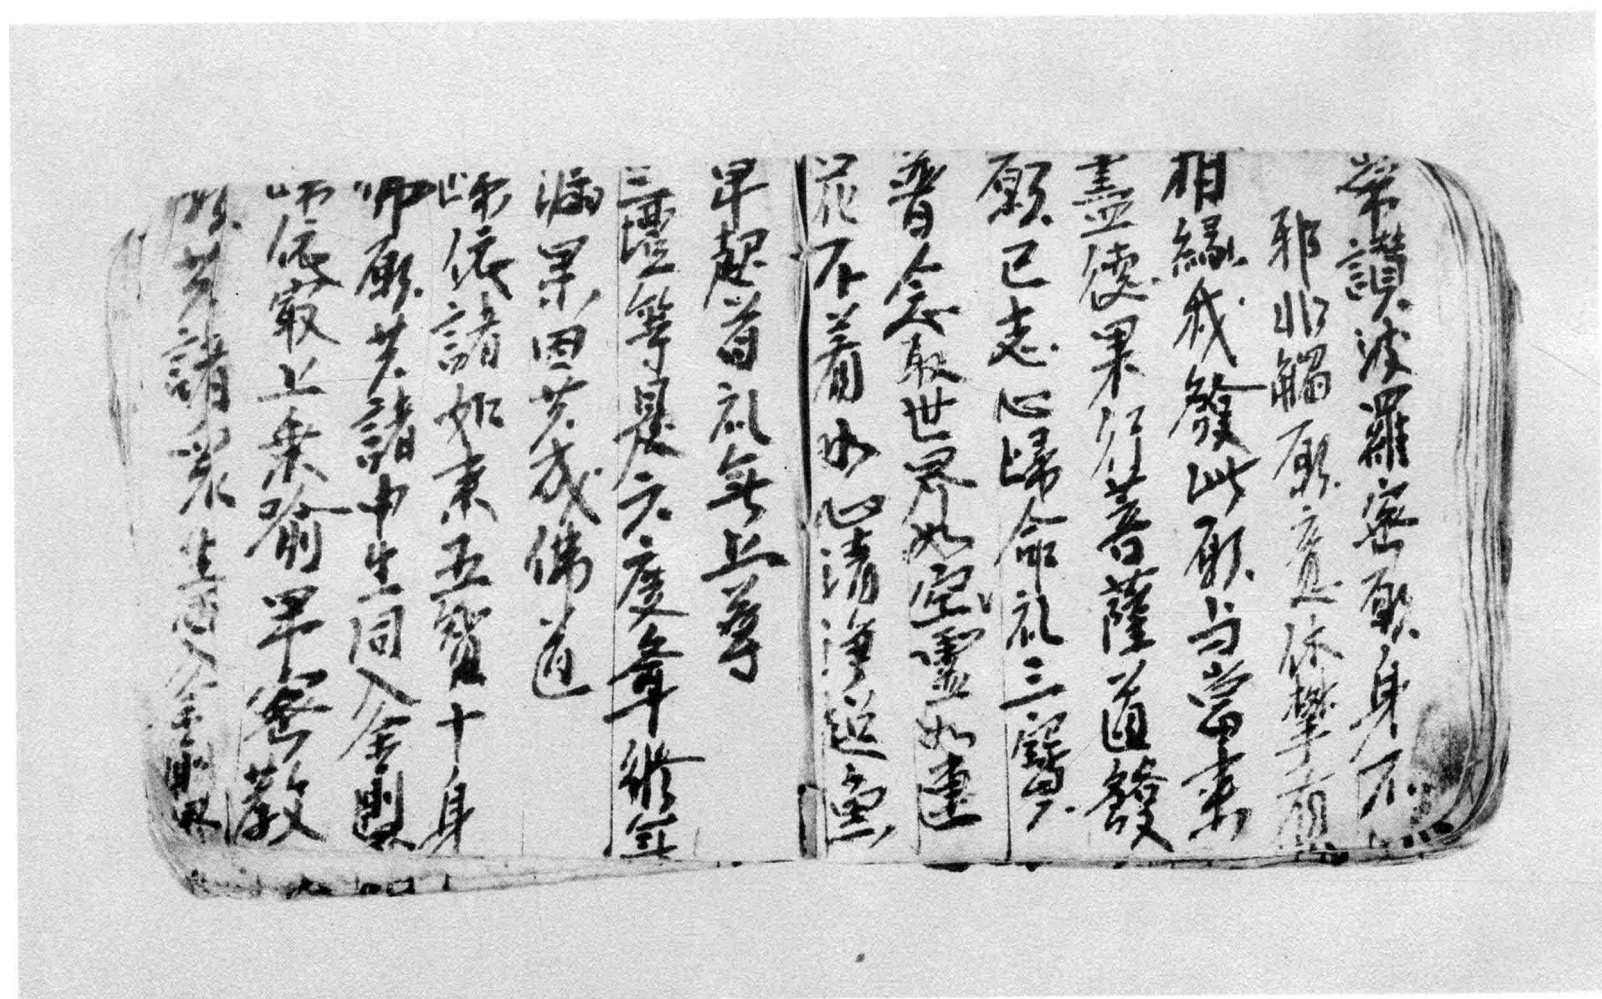 常讃波羅蜜願身不
邪非觸願意休攀
相緣我發此願当當来
盡使果行菩薩道發
願已志心歸命礼三寶
普念敢世界如空虚如連
花不着水心清淨超壹
早起首礼無上尊
三壇等是六度年修無
漏果因共成佛道
歸依諸如来五智十身
師願共諸中生同入金剛
歸依最上乗瑜早密教
願共諸衆生同入金剛